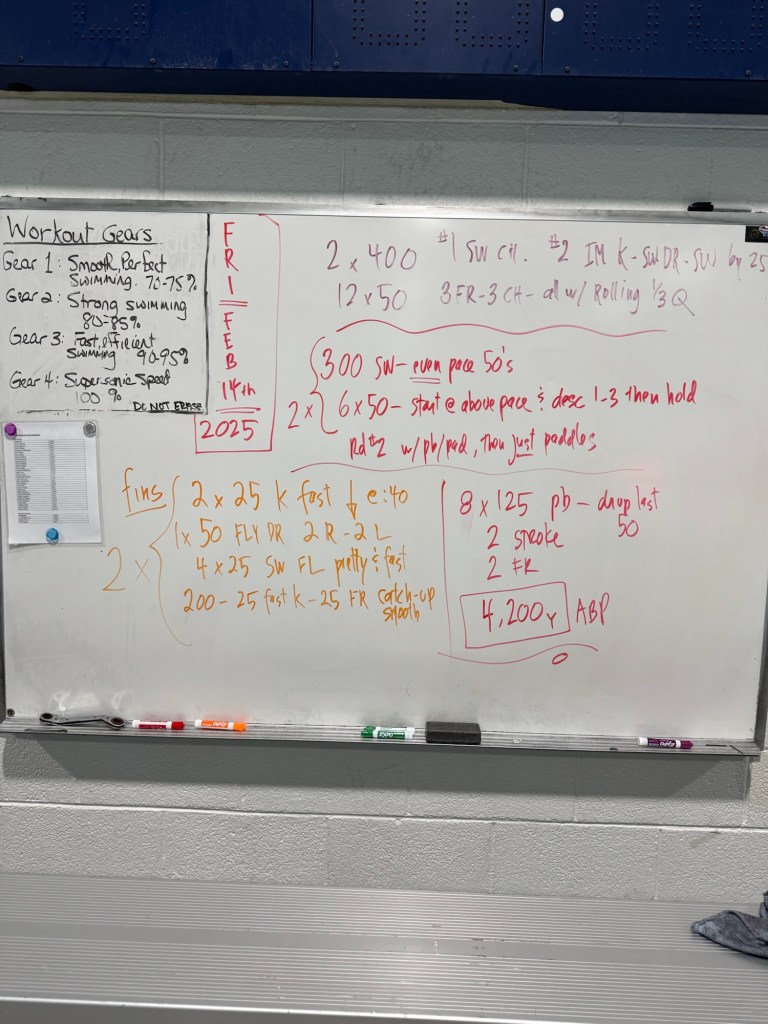 Workout Gears
Gear 1: Smooth, Perfect
Swimming. 70-75%
Gear 2: Strong swimming
80-85%
Gear 3: Fast, efficient
Swimming 90-95%
Gear 4: Supersonic Speed
100 %
DO NOT ERASE
F
R
I
F
E
B
14th
2025
2 x 400 #1 SW CH. #2 IM K-SW DR-SW by 25
12 x 50 3 FR-3 CH- all w/ Rolling 1/3 Q
2 x
300 SW- even pace 50's
6 x 50 - start @ above pace & desc 1-3 then hold
Rd #2 w/ pb/pad, then just paddles
fins
2 x
2 x 25 K fast ↓ @ :40
1 x 50 FLY DR 2 R - 2 L
4 x 25 SW FL pretty & fast
200 - 25 fast K - 25 FR catch-up
smooth
8 x 125 pb - drop last
50
2 stroke
2 FR
4,200y ABP
EXPO
EXPO